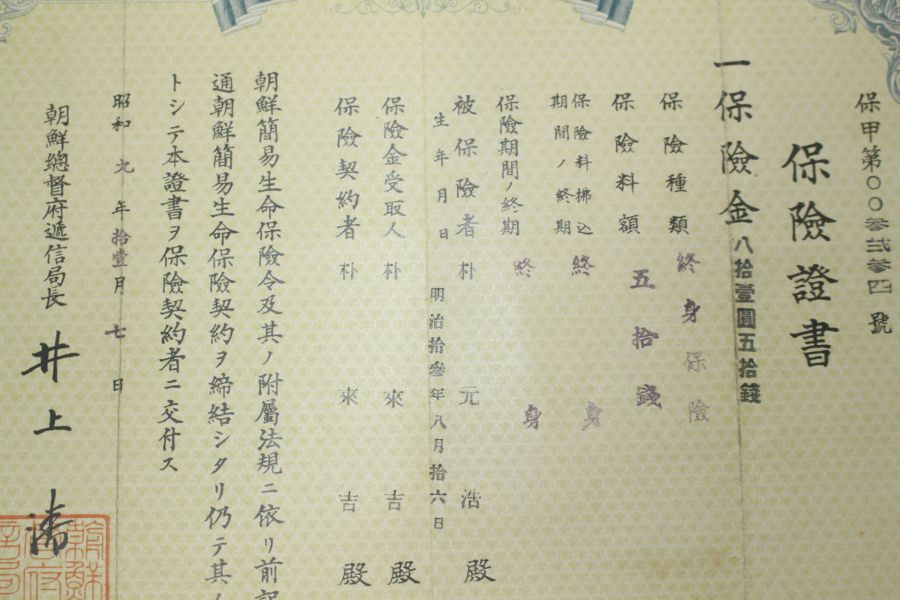 保甲第〇〇參弐參四號
保險證書
一保險金 八拾壹圓五拾錢
保險種類 終身保險
保險料額 五拾錢
保險料拂込
期間ノ終期 終身
保險期間ノ終期 終身
被保險者 朴元浩殿
生年月日 明治拾參年八月拾六日
保險金受取人 朴來吉殿
保險契約者 朴來吉殿
朝鮮簡易生命保險令及其ノ附屬法規ニ依リ前記
通朝鮮簡易生命保險契約ヲ締結シタリ仍テ其ノ
トシテ本證書ヲ保險契約者ニ交付ス
昭和九年拾壹月七日
朝鮮總督府遞信局長 井上
朝鮮